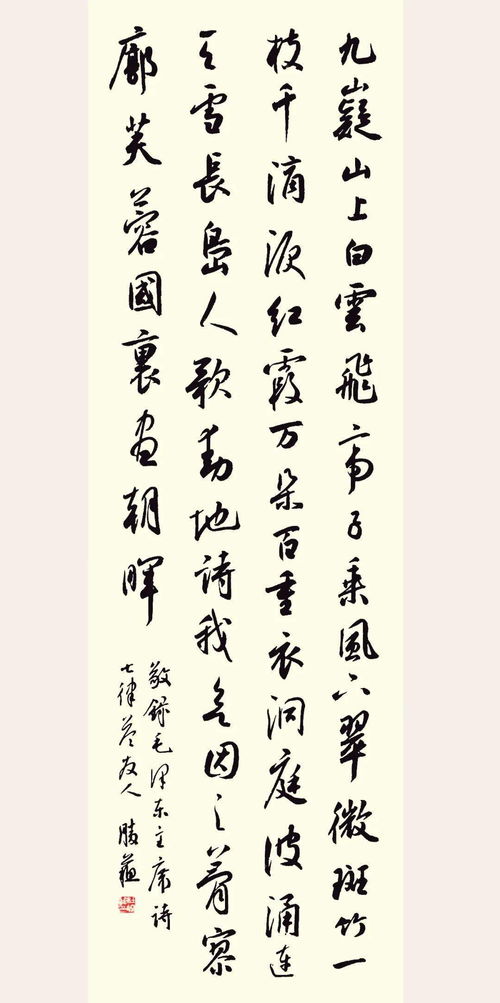 九嶷山上白雲飛帝子乘風下翠微斑竹一
枝千滴淚紅霞万朵百重衣洞庭波涌連
天雪長島人歌動地詩我欲因之夢寥
廓芙蓉國裏盡朝暉
敬錄毛澤東主席詩
七律答友人 勝